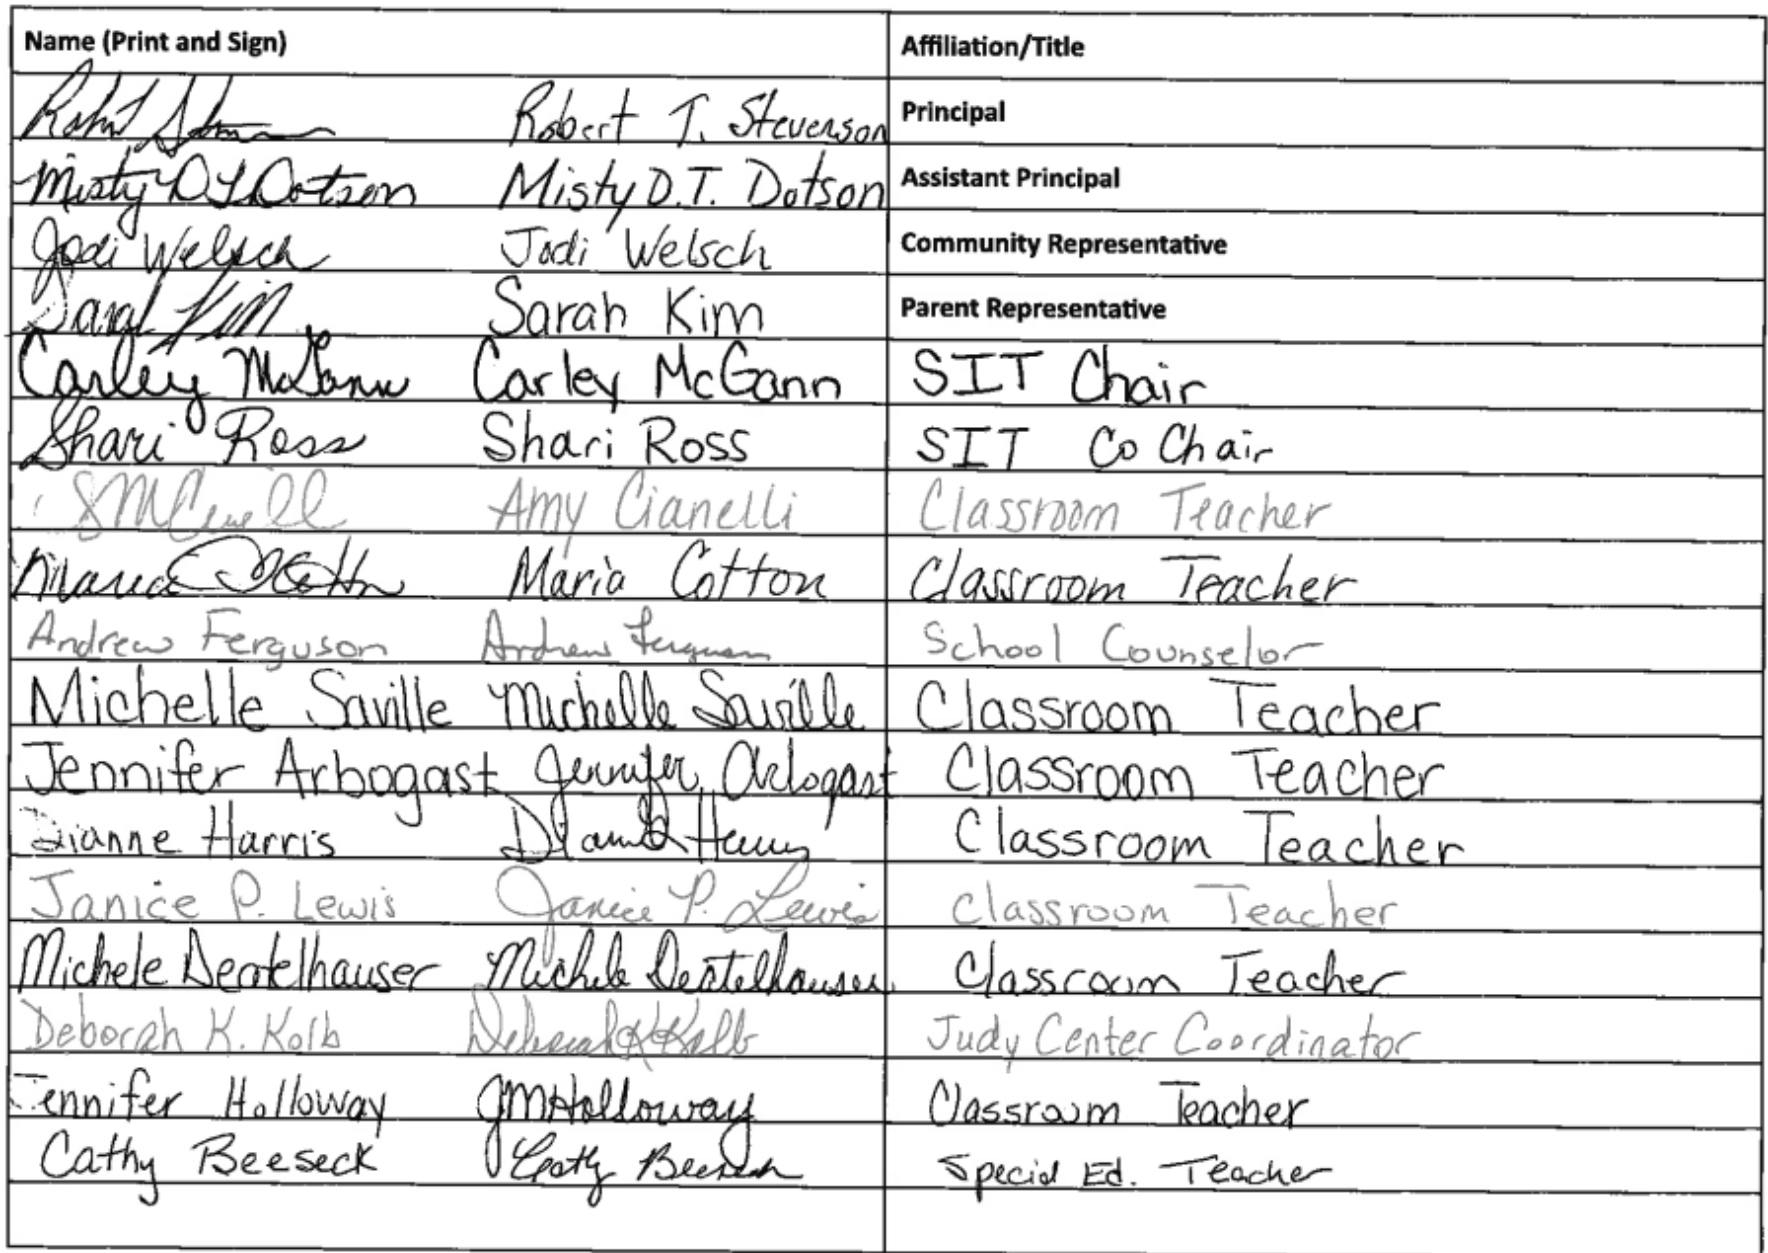 Name (Print and Sign) Affiliation/Title
Robert T. Stevenson Principal
Misty D.T. Dotson Misty D.T. Dotson Assistant Principal
Jodi Welsch Jodi Welsch Community Representative
Sarah Kim Sarah Kim Parent Representative
Carley McGann Carley McGann SIT Chair
Shari Ross Shari Ross SIT Co Chair
Amy Cianelli Classroom Teacher
Maria Cotton Classroom Teacher
Andrew Ferguson Andrew Ferguson School Counselor
Michelle Saville Michelle Saville Classroom Teacher
Jennifer Arbogast Jennifer Arbogast Classroom Teacher
Dianne Harris Classroom Teacher
Janice P. Lewis Janice P. Lewis Classroom Teacher
Michele Dentelhauser Michele Dentelhauser Classroom Teacher
Deborah K. Kolb Deborah K Kolb Judy Center Coordinator
Jennifer Holloway JMHolloway Classroom Teacher
Cathy Beeseck Cathy Beeseck Special Ed. Teacher